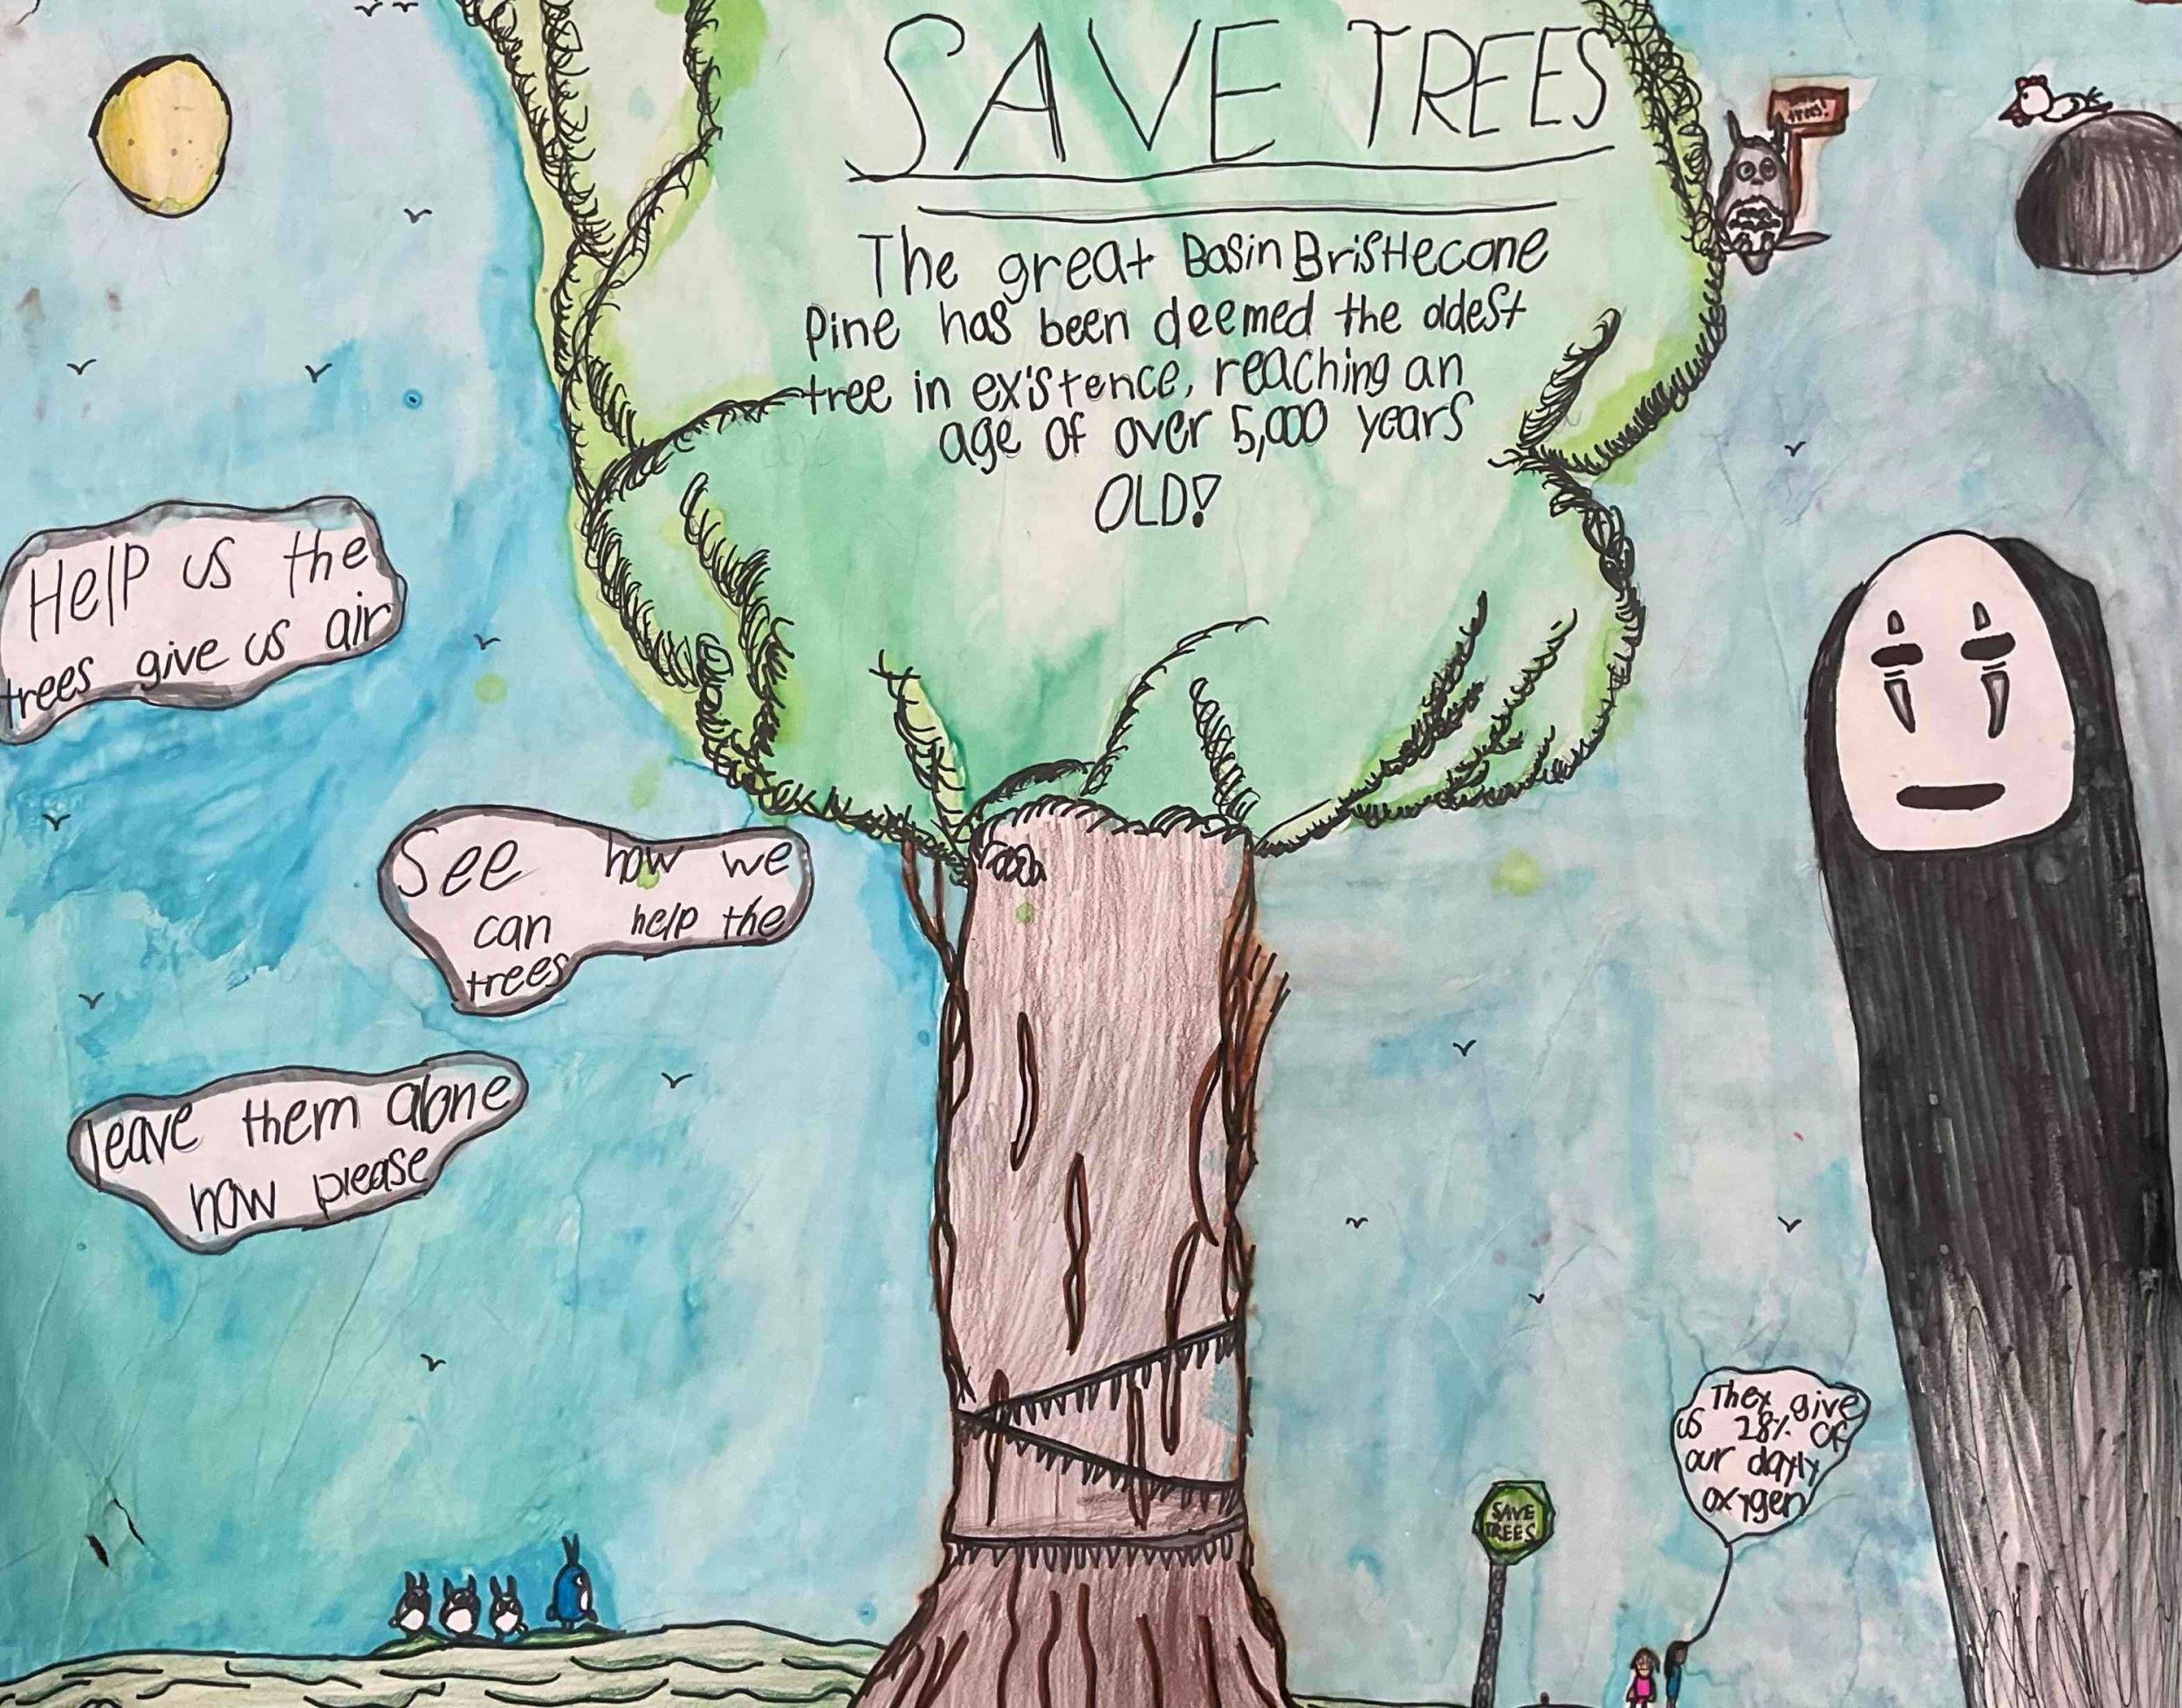 SAVE TREES
The great Basin Bristlecone
Pine has been deemed the oldest
tree in existence, reaching an
age of over 5,000 years
OLD!
trees!
Help us the
trees give us air
See how we
can help the
trees
leave them alone
now please
They give
us 28% of
our dayly
oxygen
SAVE
TREES